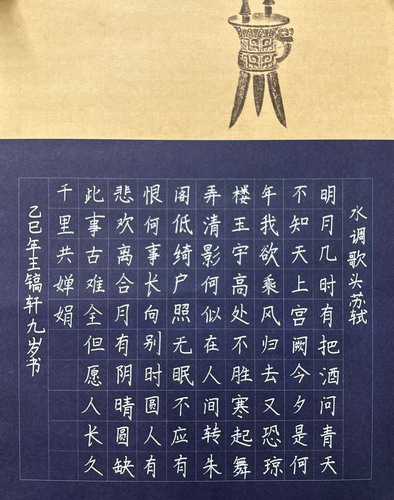 水调歌头苏轼
明月几时有把酒问青天
不知天上宫阙今夕是何
年我欲乘风归去又恐琼
楼玉宇高处不胜寒起舞
弄清影何似在人间转朱
阁低绮户照无眠不应有
恨何事长向别时圆人有
悲欢离合月有阴晴圆缺
此事古难全但愿人长久
千里共婵娟
乙巳年王镐轩九岁书